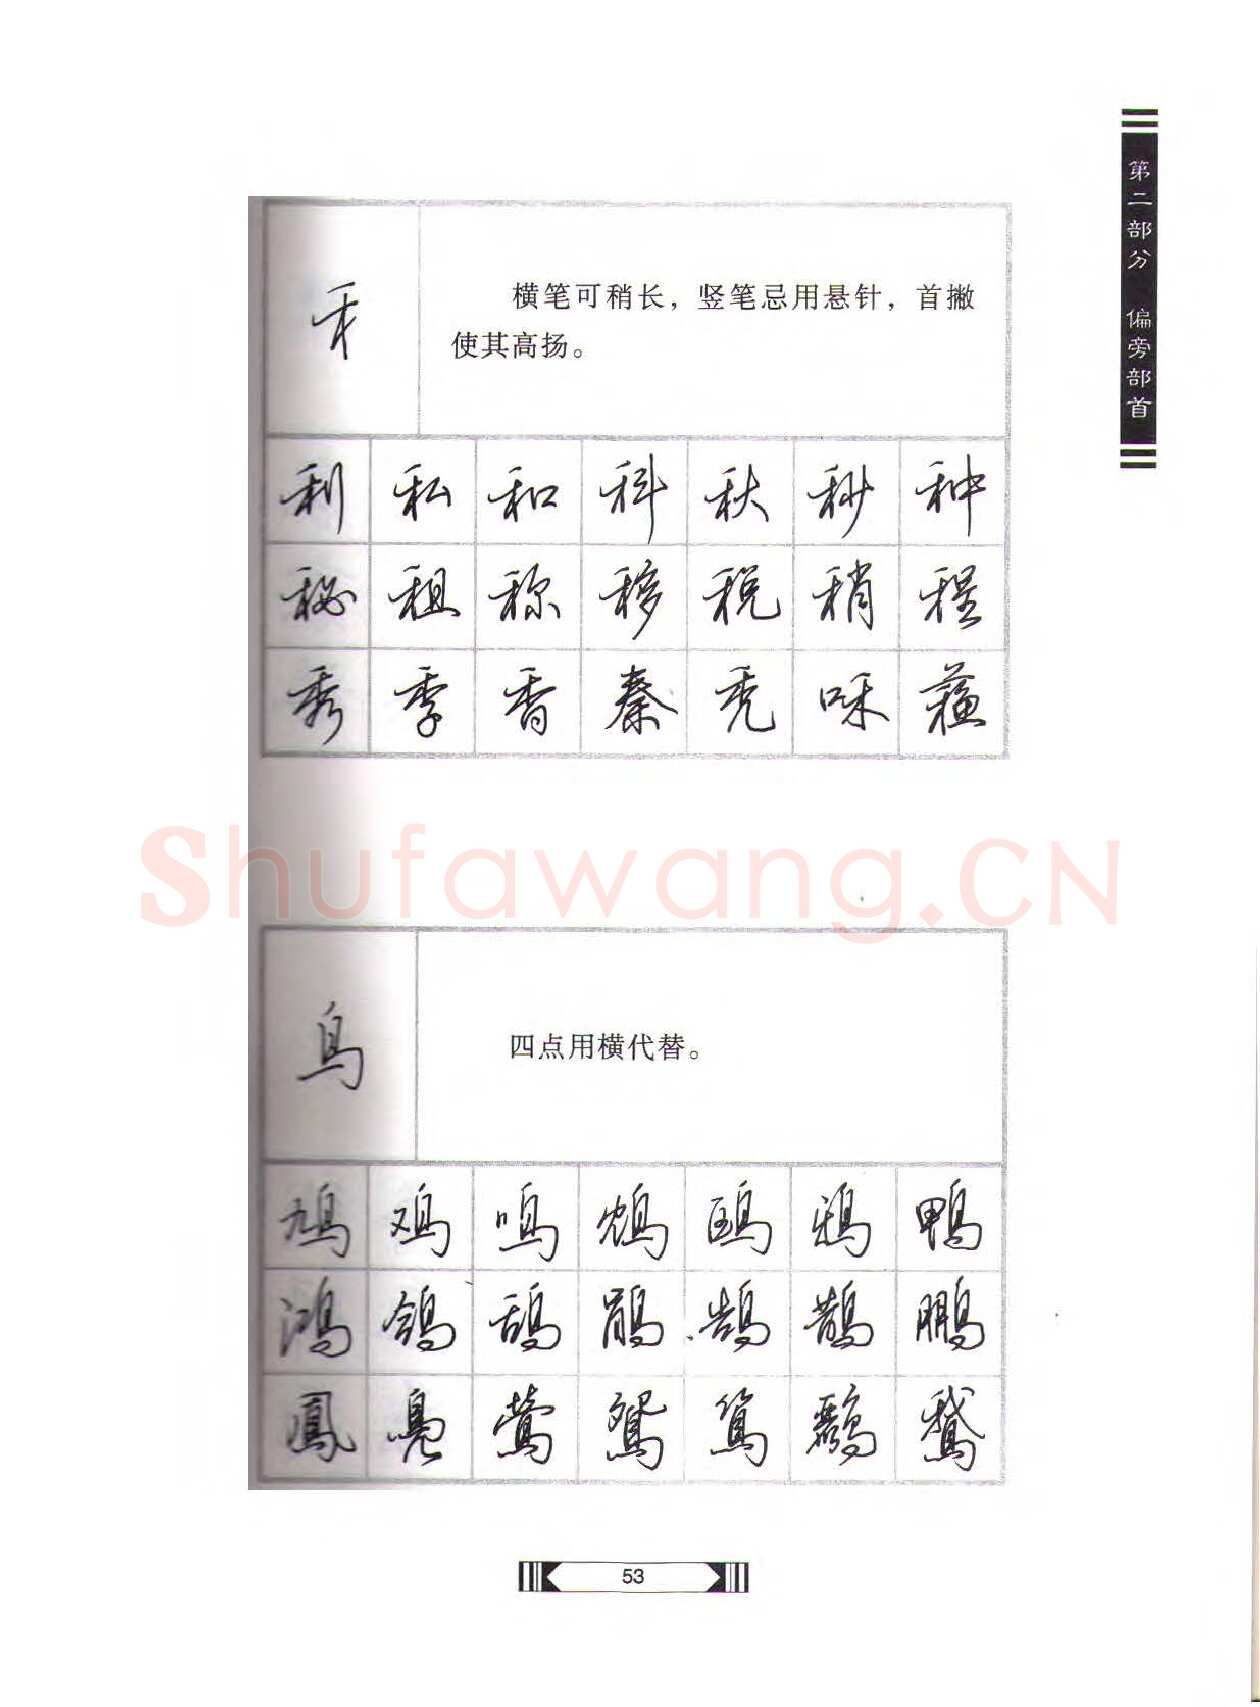 第二部分 偏旁部首
禾
横笔可稍长，竖笔忌用悬针，首撇
使其高扬。
利 私 和 科 秋 秒 种
秘 租 称 移 税 稍 程
秀 季 香 秦 秃 味 蘓
shufawang.CN
鸟
四点用横代替。
鸠 鸡 鸣 鸩 鸥 鸦 鸭
鸿 鸽 鸹 鹃 鹄 鹊 鹏
鳳 凫 莺 鸳 鸶 鹅
53